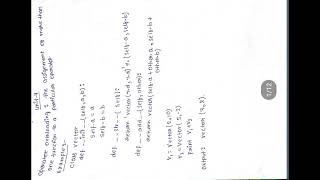 Unit-4
Operator overloading : The assignment of more than
one function to a particular operator
Example:-
class vector
def __init__(self, a, b):
self.a = a
self.b = b
def __str__(self):
return 'vector (%d, %d)' % (self.a, self.b)
def __add__(self, other):
return vector (self.a + other.a, self.b +
other.b)
v1 = vector (2,10)
v2 = vector (5,-2)
print v1+v2
output: vector (7,8).
1/12